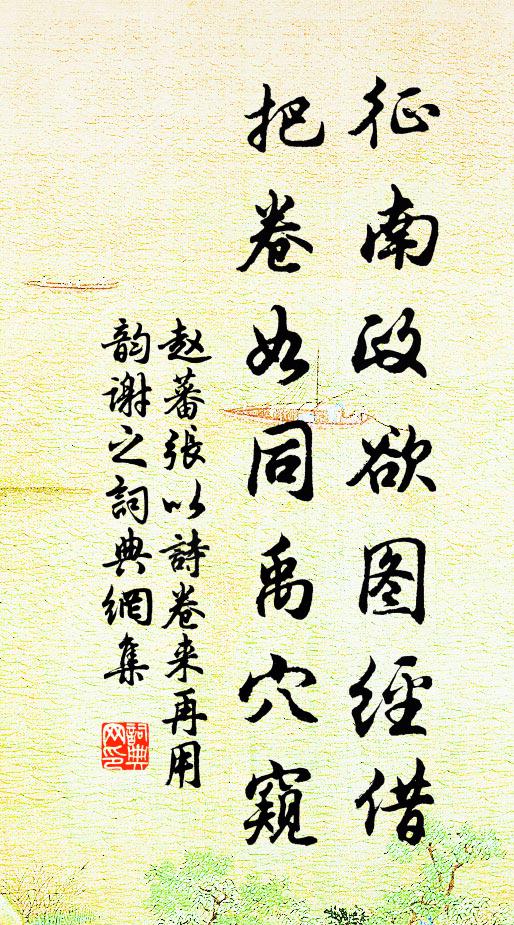 征南政欲图經借
把卷如同禹穴窺
赵蕃張以詩卷来再用
韵谢之詞典網集
詞典网印